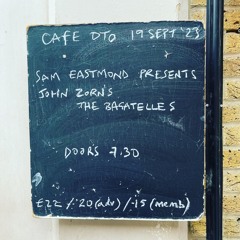 CAFE OTO 19 SEPT '23
SAM EASTMOND PRESENTS
JOHN ZORN'S
THE BAGATELLES
DOORS 7.30
£22 / £20 (adv) / £15 (memb)